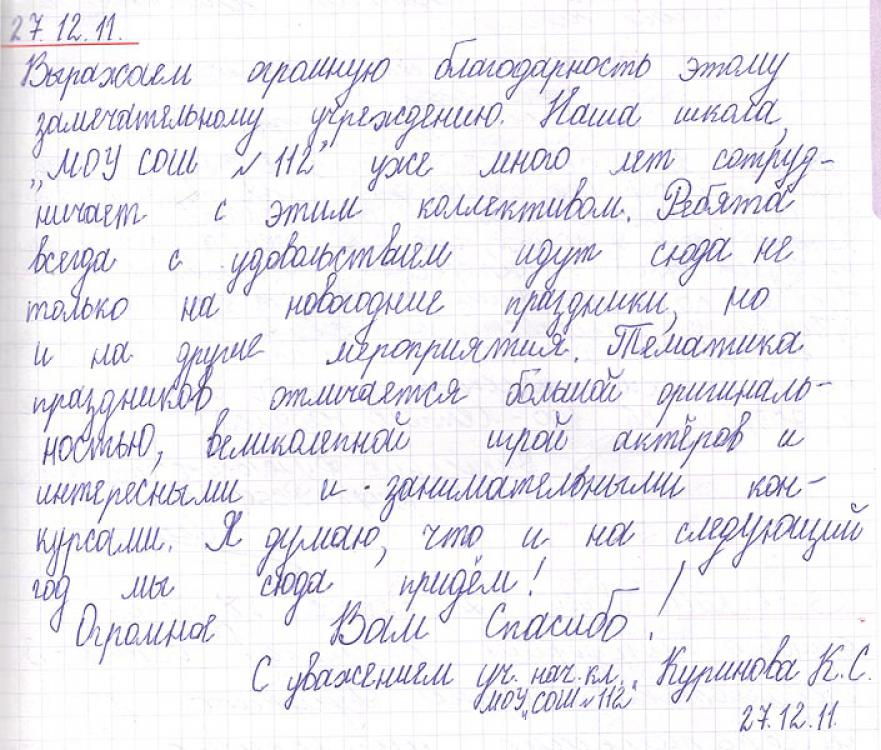 27.12.11.
Выражаем огромную благодарность этому
замечательному учреждению. Наша школа,
„МОУ СОШ №112" уже много лет сотруд-
ничает с этим коллективом. Ребята
всегда с удовольствием идут сюда не
только на новогодние праздники, но
и на другие мероприятия. Тематика
праздников отличается большой оригиналь-
ностью, великолепной игрой актёров и
интересными и занимательными кон-
курсами. Я думаю, что и на следующий
год мы сюда придём!
Огромное Вам Спасибо!
С уважением уч. нач. кл. Куринова К.С.
МОУ „СОШ №112"
27.12.11.